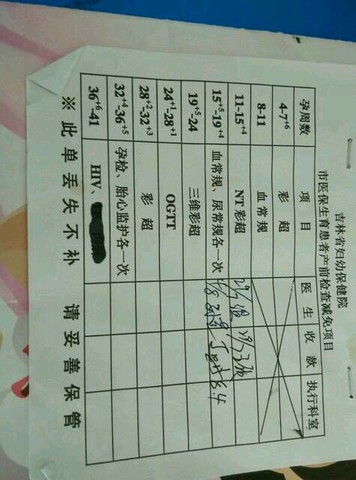 吉林省妇幼保健院
市医保生育患者产前检查减免项目
孕周数 项目 医生 收款 执行科室
4-7+6 彩超
8-11 血常规
11-15+4 NT彩超
15+5-19+4 血常规、尿常规各一次
19+5-24 三维彩超
24+1-28+1 OGTT
28+2-32+3 彩超
32+4-36+5 孕检、胎心监护各一次
36+6-41 HIV、
※此单丢失不补 请妥善保管